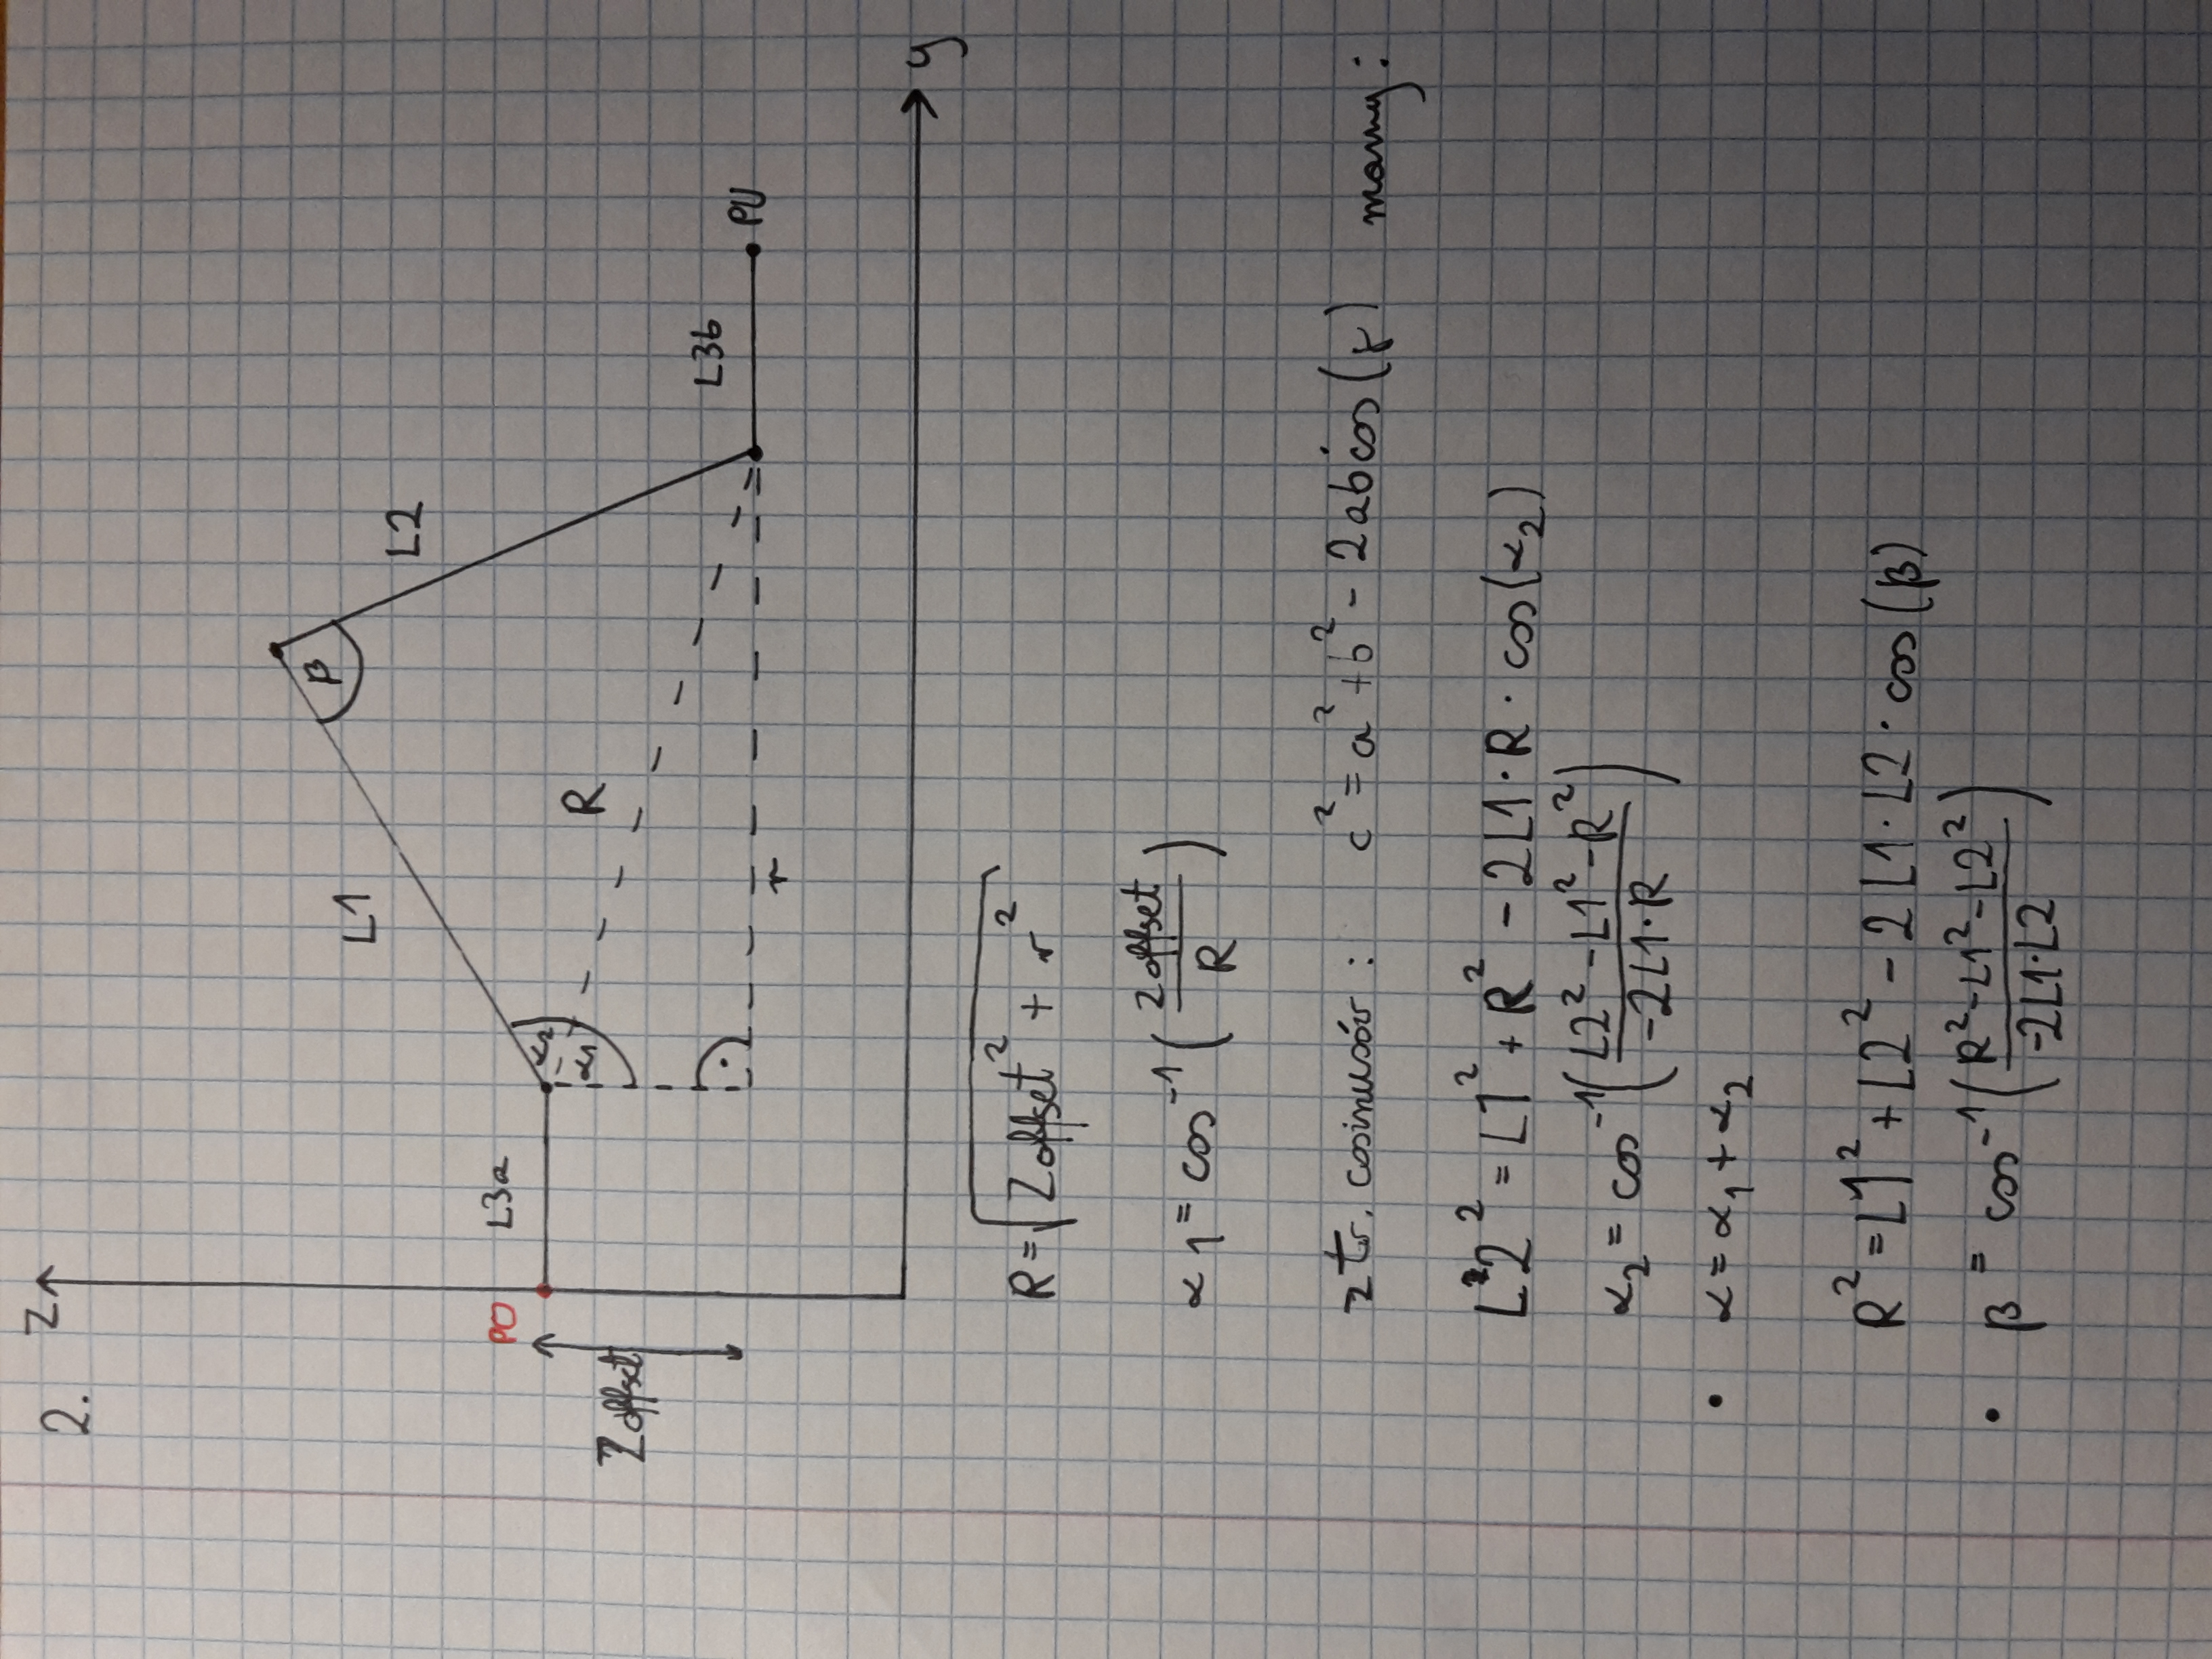 2.
z
β
L1
L2
PO
L3a
α2
α1
R
Zoffset
L3b
PU
r
y
R = √(Zoffset² + r²)
α1 = cos⁻¹(zoffset / R)
z tw. cosinusów : c² = a² + b² - 2ab cos(γ) mamy :
L2² = L1² + R² - 2L1·R·cos(α₂)
α₂ = cos⁻¹((L2² - L1² - R²) / (-2L1·R))
• α = α₁ + α₂
R² = L1² + L2² - 2L1·L2·cos(β)
• β = cos⁻¹((R² - L1² - L2²) / (-2L1·L2))